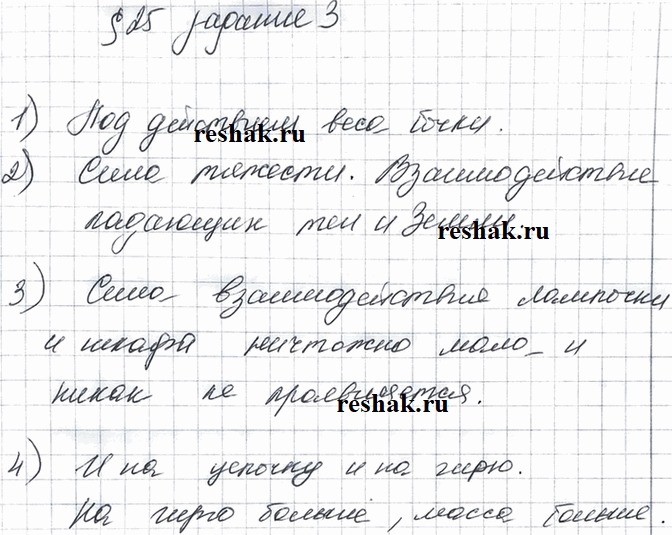 § 25 задание 3
1) Под действием веса бочки.
2) Сила тяжести. Взаимодействие
падающих тел и Земли.
3) Сила взаимодействия лампочки
и шкафа ничтожно мала и
никак не проявляется.
4) И на цепочку и на гирю.
На гирю больше, масса больше.
reshak.ru
reshak.ru
reshak.ru